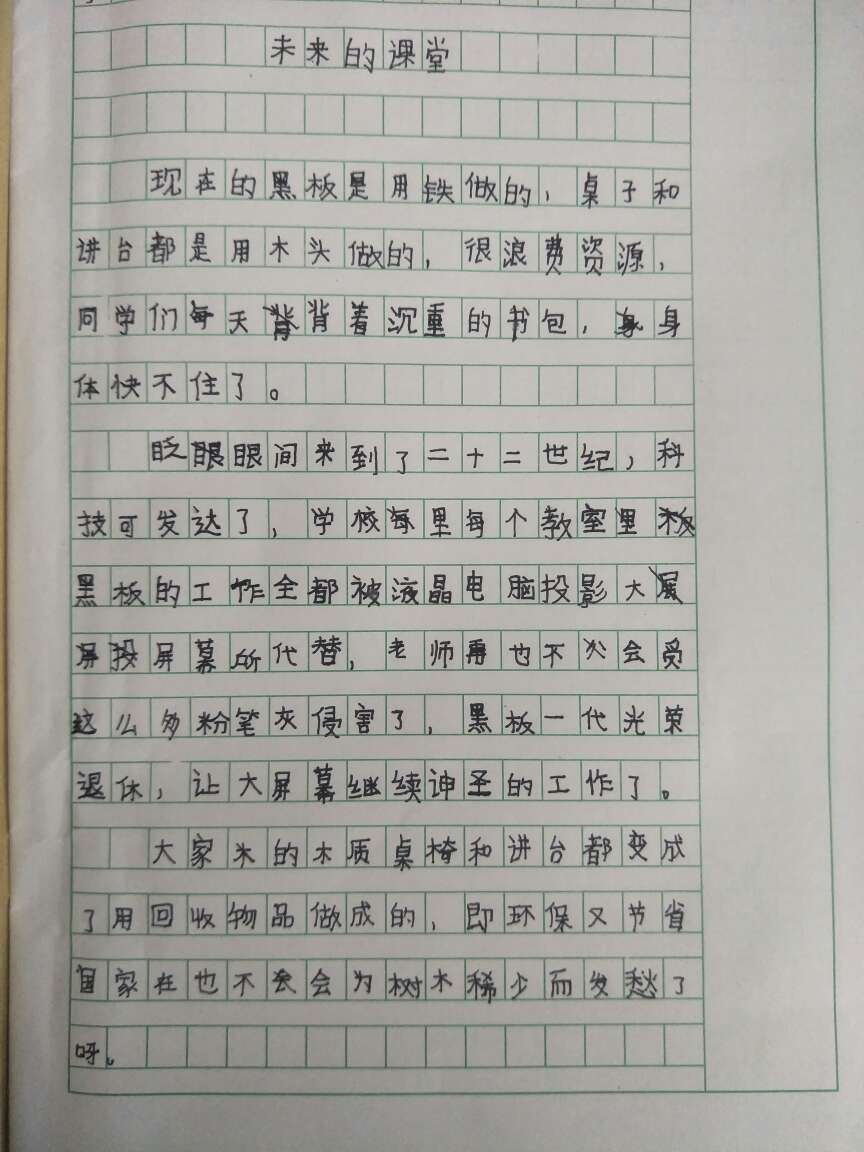 未来的课堂
现在的黑板是用铁做的，桌子和
讲台都是用木头做的，很浪费资源，
同学们每天背着沉重的书包，身
体快不住了。
眨眼间来到了二十二世纪，科
技可发达了，学校里每个教室里
黑板的工作全都被液晶电脑投影大
屏幕所代替，老师再也不会受
这么多粉笔灰侵害了，黑板一代光荣
退休，让大屏幕继续神圣的工作了。
大家的木质桌椅和讲台都变成
了用回收物品做成的，即环保又节省
国家在也不会为树木稀少而发愁了
呀。